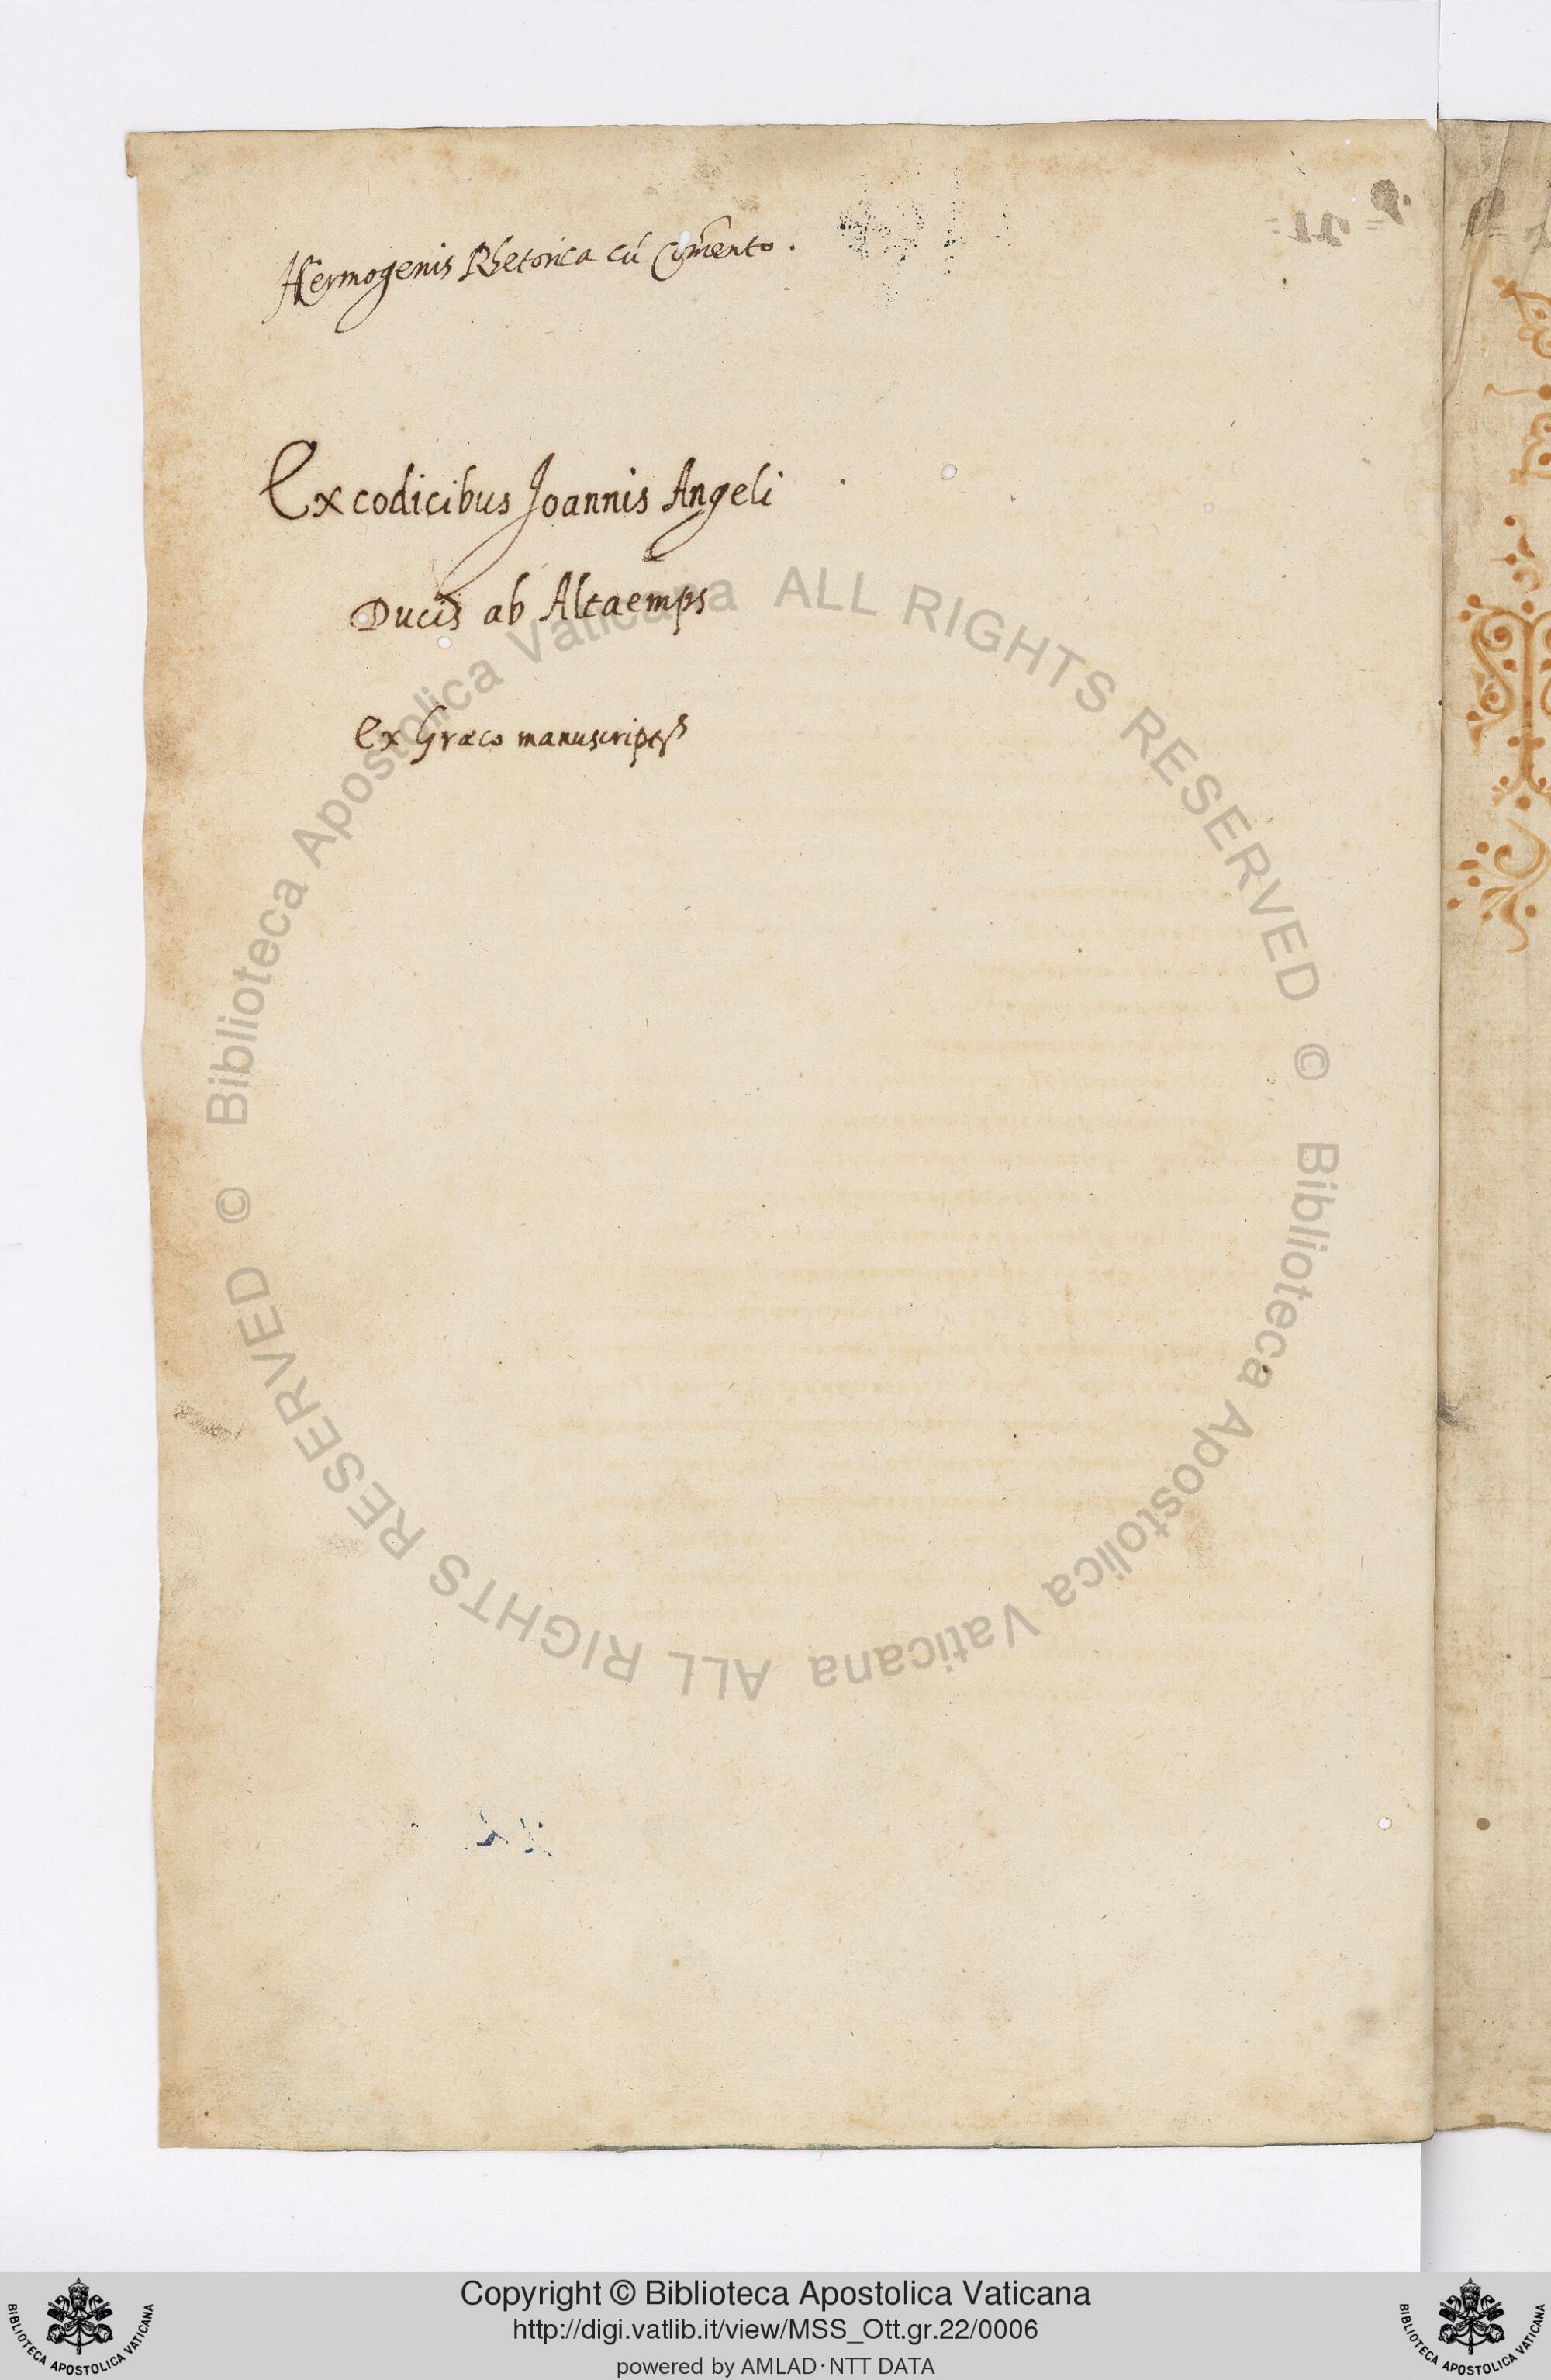 Hermogenis Rhetorica cū Com̄ento.
Ex codicibus Joannis Angeli
Ducis ab Altaemps
Ex Græco
© Biblioteca Apostolica Vaticana ALL RIGHTS RESERVED
© Biblioteca Apostolica Vaticana ALL RIGHTS RESERVED
Copyright © Biblioteca Apostolica Vaticana
http://digi.vatlib.it/view/MSS_Ott.gr.22/0006
powered by AMLAD·NTT DATA
BIBLIOTECA APOSTOLICA VATICANA
BIBLIOTECA APOSTOLICA VATICANA